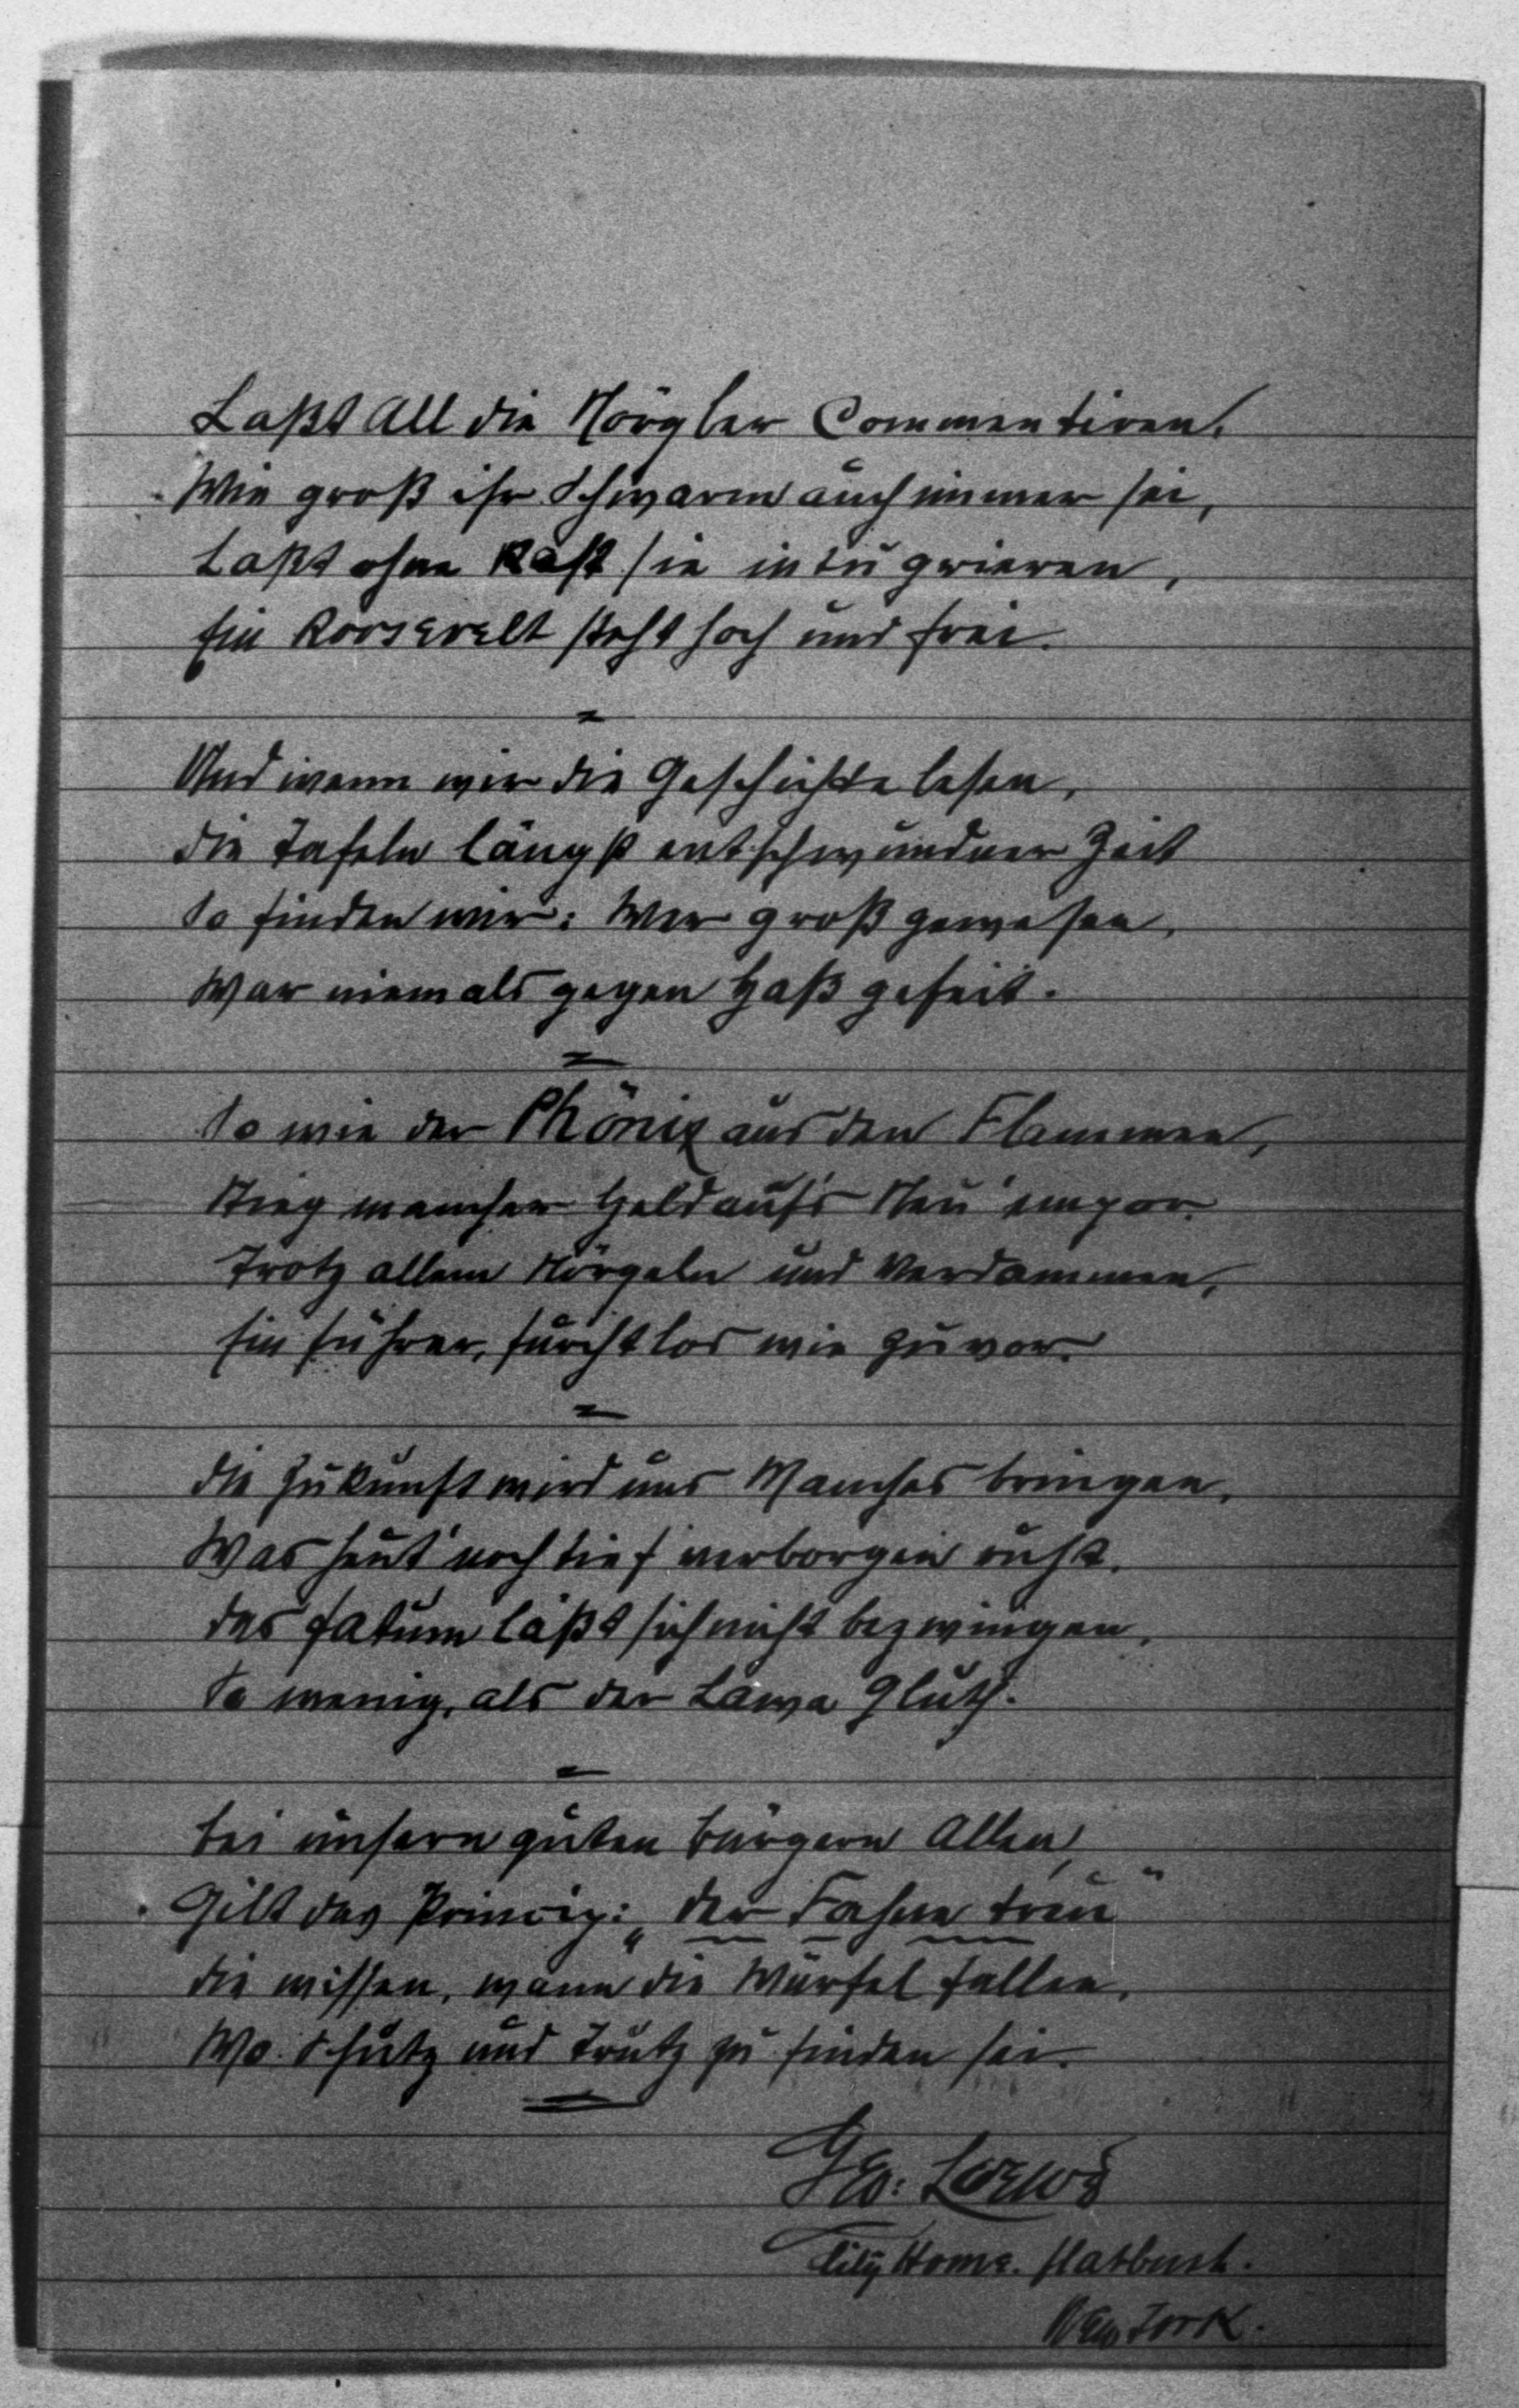 Laßt All die Nörgler Commentiren,
Wie groß ihr Schwarm auch immer sei,
Laßt ohne Rast sie intrigrieren,
Ein Roosevelt steht hoch und frei.
Und wenn wir die Geschichte lesen,
Die Tafeln längst entschwundner Zeit
So finden wir: Wer groß gewesen,
War niemals gegen Haß gefeit.
So wie der Phönix aus den Flammen,
Stieg mancher Held auf's Neu' empor.
Trotz allem Nörgeln und Verdammen,
Ein Führer, furchtlos wie zuvor.
Die Zukunft wird uns Manches bringen,
Was heut' noch tief verborgen ruht,
Das Fatum läßt sich nicht bezwingen,
So wenig, als der Lawa Gluth.
Bei unsern guten Bürgern Allen,
Gilt das Princip: „Der Fahne treu“
Die wissen, wann die Würfel fallen,
Wo Schutz und Trutz zu finden sei.
Geo: Loewy
City Home. Flatbush.
New York.